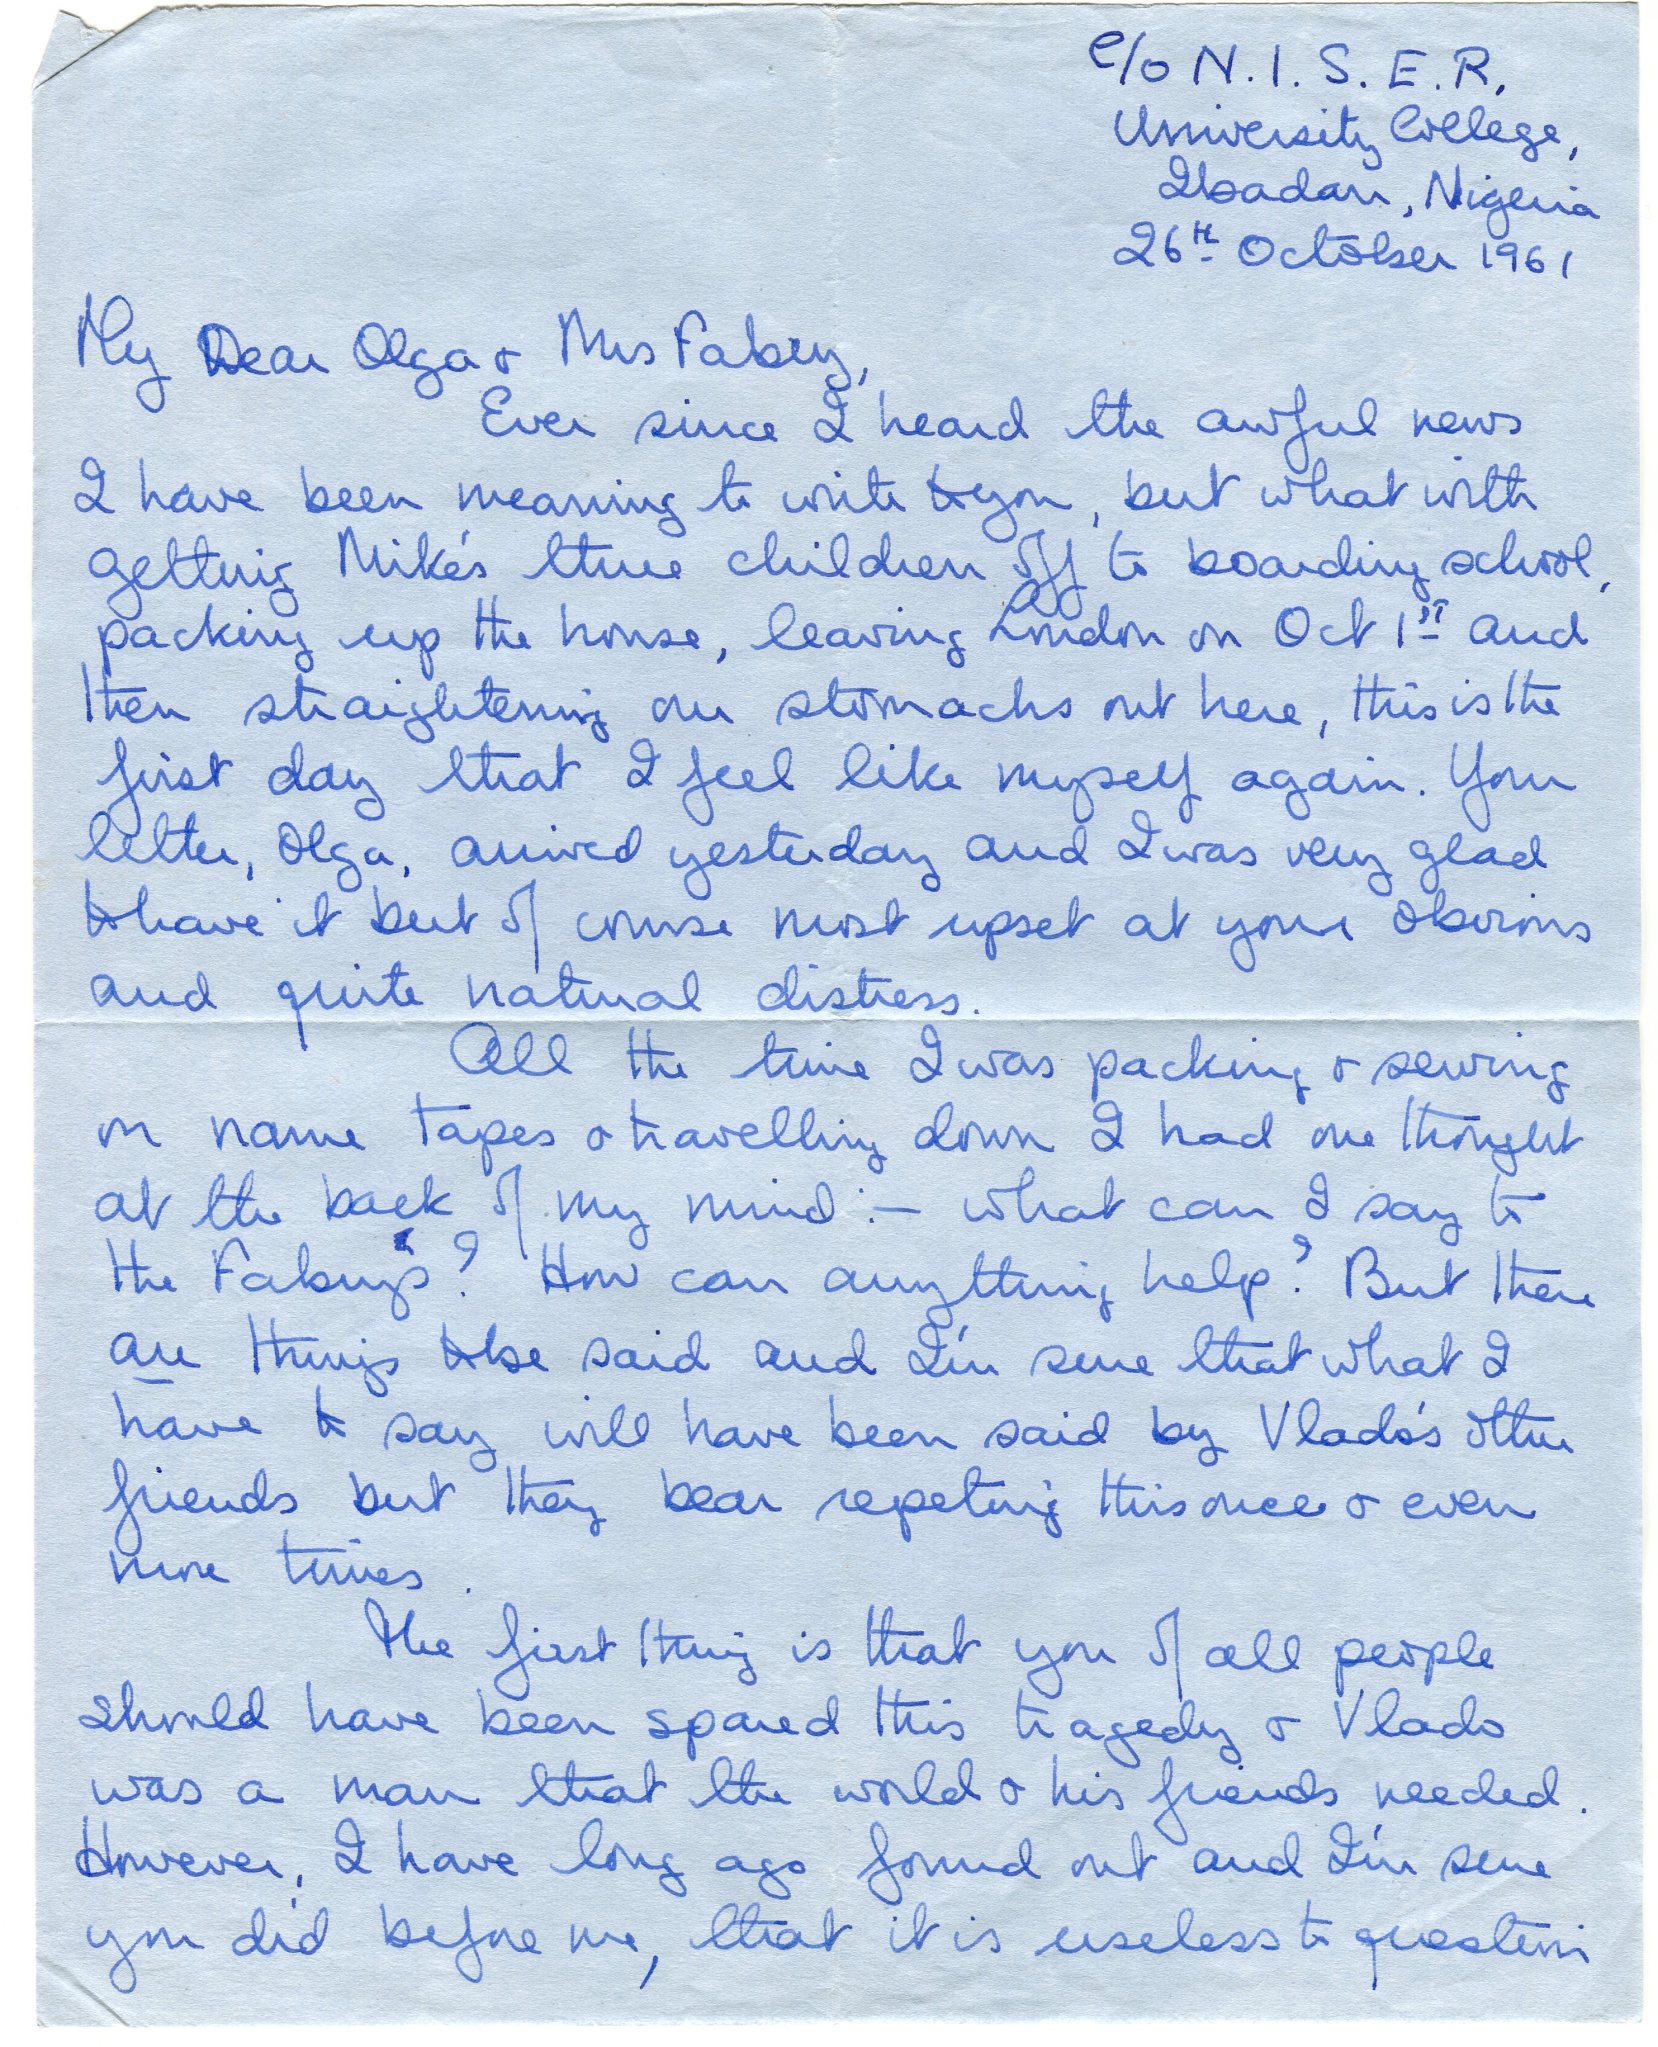 c/o N.I.S.E.R,
University College,
Ibadan, Nigeria
26th October 1961
My Dear Olga & Mrs Fabry,
Ever since I heard the awful news
I have been meaning to write to you, but what with
getting Mike's three children off to boarding school,
packing up the house, leaving London on Oct 1st and
then straightening our stomachs out here, this is the
first day that I feel like myself again. Your
letter, Olga, arrived yesterday and I was very glad
to have it but of course most upset at your obvious
and quite natural distress.
All the time I was packing & sewing
on name tapes & travelling down I had one thought
at the back of my mind :– what can I say to
the Fabrys? How can anything help? But there
are things to be said and I'm sure that what I
have to say will have been said by Vlado's other
friends but they bear repeting this once & even
more times.
The first thing is that you of all people
should have been spared this tragedy & Vlado
was a man that the world & his friends needed.
However, I have long ago found out and I'm sure
you did before me, that it is useless to question